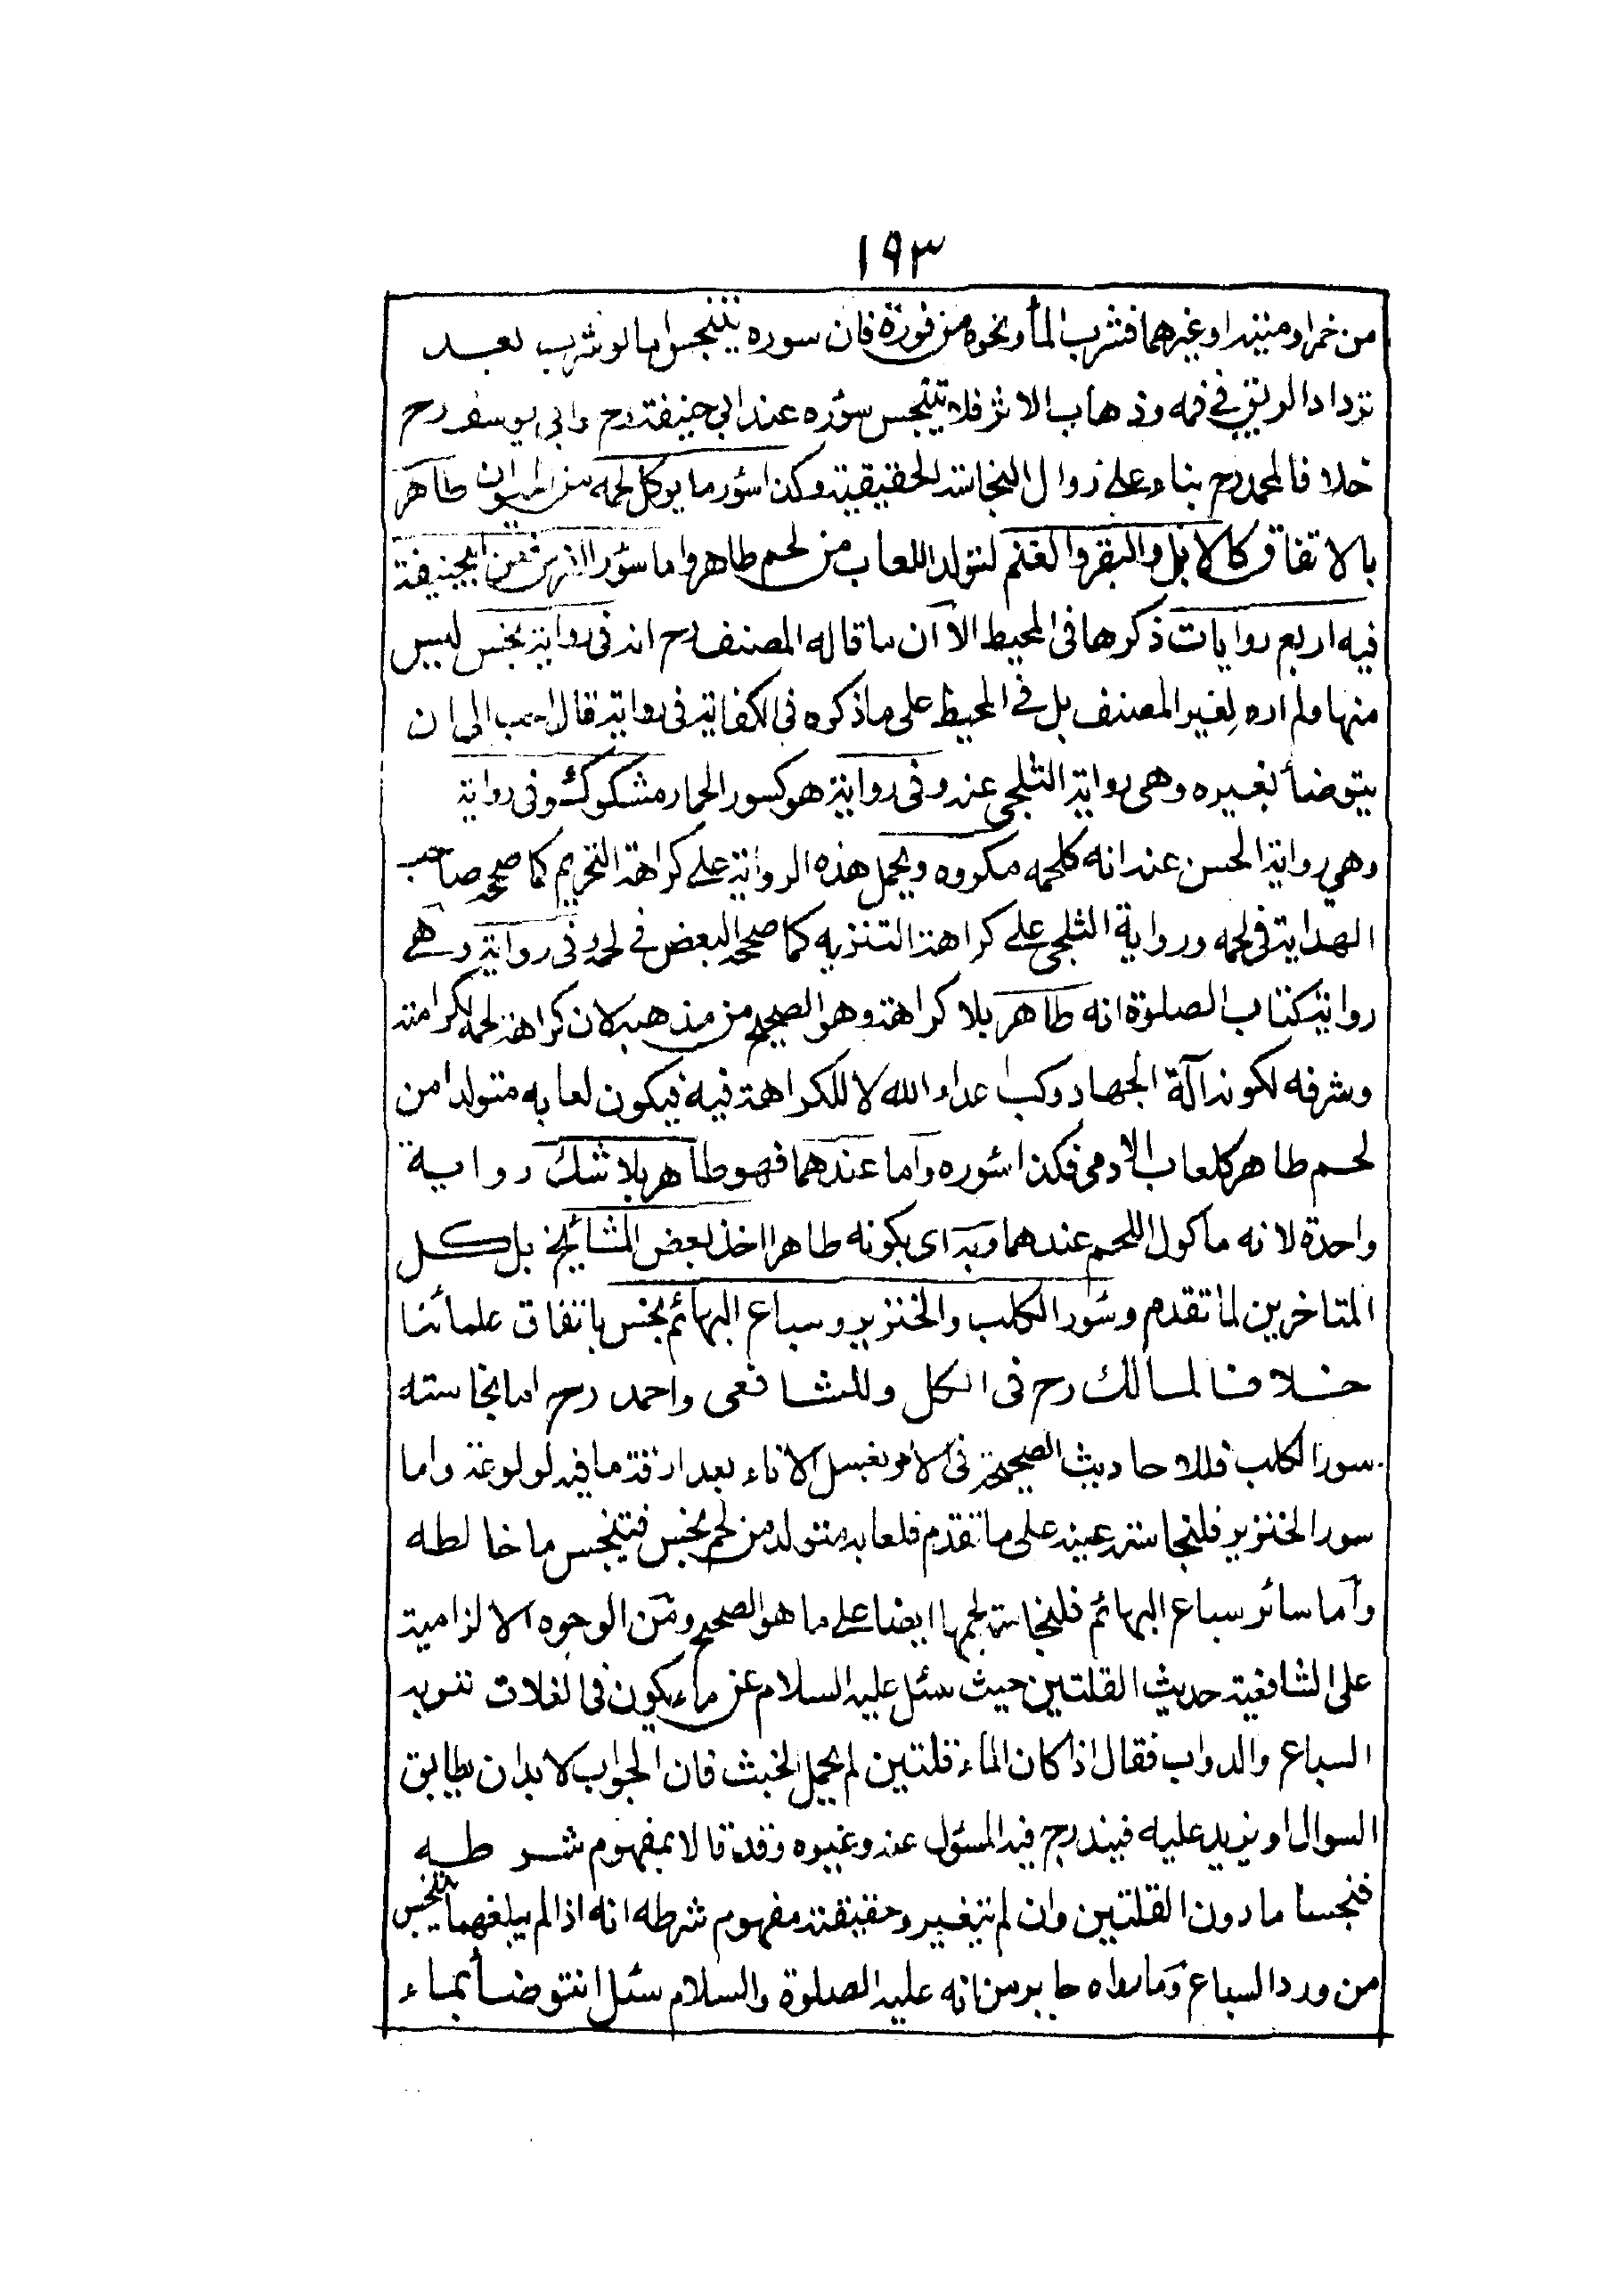 ١٩٣
من خمر او منيتذ او غيرهما فشرب الماء ونحوه من فورة فان سوره يتنجس اما لو شرب بعد
تزداد الريق في فمه وذهاب الاثر فلا يتنجس سؤره عند ابي حنيفة رح وابي يوسف رح
خلافا لمحمد رح بناء على زوال النجاسة الحقيقية وكذا سؤر ما يوكل لحمه من الحيوان طاهر
بالاتفاق كالابل والبقر والغنم لتولد اللعاب من لحم طاهر واما سؤر الفرس فعن ابيحنيفة
فيه اربع روايات ذكرها في المحيط الا آن ما قاله المصنف رح انه في رواية نجس ليس
منها ولم اره لغير المصنف بل في المحيط على ما ذكره في الكفاية في رواية قال احب الى ان
يتوضأ بغيره وهي رواية الثلجي عنه وفى رواية هو كسور الحمار مشكوك وفى رواية
وهي رواية الحسن عنه انه كلحمه مكروه ويحمل هذه الرواية على كراهة التحريم كما صححه صاحب
الهداية في لحمه ورواية الثلجى على كراهة التنزيه كما صححه البعض في لحمه وفى رواية وهي
رواية كتاب الصلوة انه طاهر بلا كراهة وهو الصحيح من مذهبه لان كراهة لحمه لكرامته
وشرفه لكونه آلة الجهاد وكبت اعداء الله لا للكراهة فيه فيكون لعابه متولدا من
لحم طاهر كلعاب الادمى فكذا سؤره وآما عندهما فهو طاهر بلا شك رواية
واحدة لانه ماكول اللحم عندهما وبه اى بكونه طاهرا اخذ بعض المشايخ بل كل
المتاخرين لما تقدم وسؤر الكلب والخنزير وسباع البهائم نجس باتفاق علمائنا
خلافا لمالك رح فى الكل وللشافعى واحمد رح اما نجاسته
سور الكلب فللاحاديث الصحيحة فى الامر بغسل الاناء بعد ارقة ما فيه لولوغه واما
سور الخنزير فلنجاسة عينه على ما تقدم فلعابه متولد من لحم نجس فيتنجس ما خالطه
وآما سائر سباع البهائم فلنجاسة لحمها ايضا على ما هو الصحيح ومن الوجوه الالزامية
على الشافعية حديث القلتين حيث سئل عليه السلام عن ماء يكون فى الفلات تنوبه
السباع والدواب فقال اذا كان الماء قلتين لم يحمل الخبث فان الجواب لابد ان يطابق
السوال او يزيد عليه فيندرج فيه المسئول عنه وغيره وقد قالا بمفهوم شرطه
فنجسا ما دون القلتين وان لم يتغير وحقيقته مفهوم شرطه انه اذا لم يبلغهما يتنجس
من ورد السباع وما رواه جابر من انه عليه الصلوة والسلام سئل انتوضأ بماء